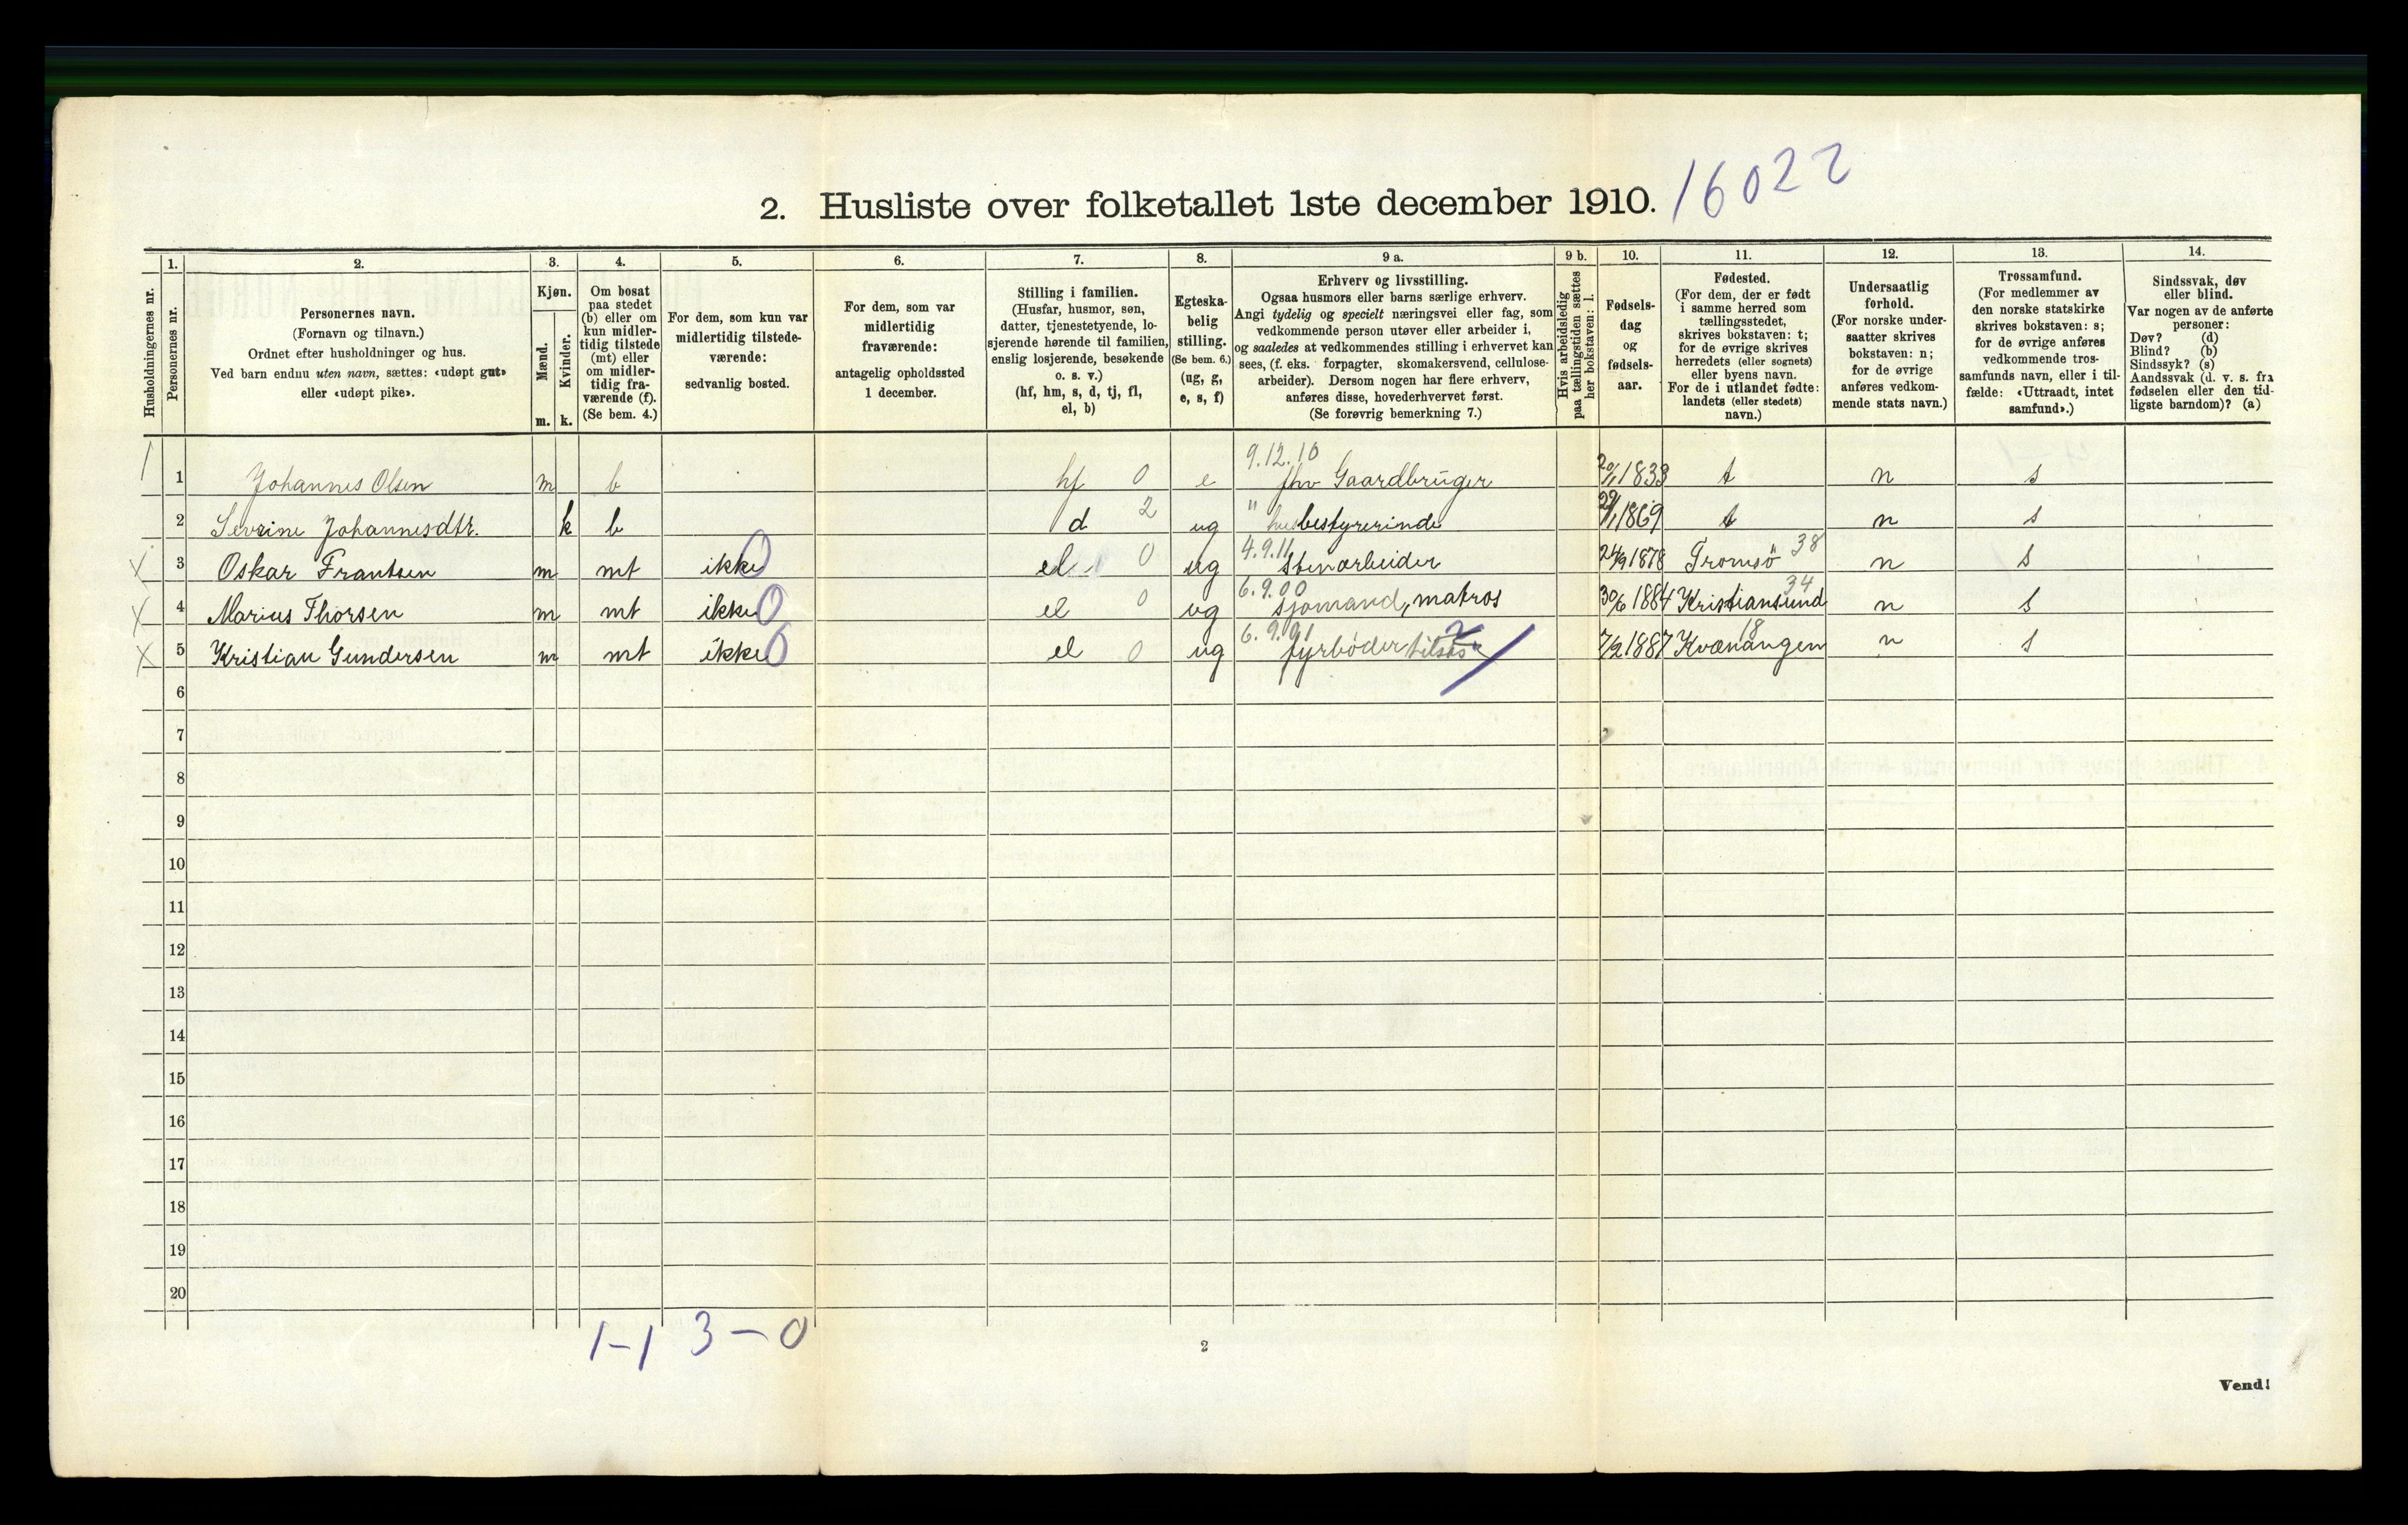 2. Husliste over folketallet 1ste december 1910. 16022
Husholdningernes nr.
1. Personernes nr.
2. Personernes navn.
(Fornavn og tilnavn.)
Ordnet efter husholdninger og hus.
Ved barn endnu uten navn, sættes: «udøpt gut»
eller «udøpt pike».
3. Kjøn.
Mænd. m.
Kvinder. k.
4. Om bosat
paa stedet
(b) eller om
kun midler-
tidig tilstede
(mt) eller
om midler-
tidig fra-
værende (f).
(Se bem. 4.)
5. For dem, som kun var
midlertidig tilstede-
værende:
sedvanlig bosted.
6. For dem, som var
midlertidig
fraværende:
antagelig opholdssted
1 december.
7. Stilling i familien.
(Husfar, husmor, søn,
datter, tjenestetyende, lo-
sjerende hørende til familien,
enslig losjerende, besøkende
o. s. v.)
(hf, hm, s, d, tj, fl,
el, b)
8. Egteska-
belig
stilling.
(Se bem. 6.)
(ug, g,
e, s, f)
9 a. Erhverv og livsstilling.
Ogsaa husmors eller barns særlige erhverv.
Angi tydelig og specielt næringsvei eller fag, som
vedkommende person utøver eller arbeider i,
og saaledes at vedkommendes stilling i erhvervet kan
sees, (f. eks. forpagter, skomakersvend, cellulose-
arbeider). Dersom nogen har flere erhverv,
anføres disse, hovederhvervet først.
(Se forøvrig bemerkning 7.)
9 b. Hvis arbeidsledig
paa tællingstiden sættes
her bokstaven: l.
10. Fødsels-
dag
og
fødsels-
aar.
11. Fødested.
(For dem, der er født
i samme herred som
tællingsstedet,
skrives bokstaven: t;
for de øvrige skrives
herredets (eller sognets)
eller byens navn.
For de i utlandet fødte:
landets (eller stedets)
navn.)
12. Undersaatlig
forhold.
(For norske under-
saatter skrives
bokstaven: n;
for de øvrige
anføres vedkom-
mende stats navn.)
13. Trossamfund.
(For medlemmer av
den norske statskirke
skrives bokstaven: s;
for de øvrige anføres
vedkommende tros-
samfunds navn, eller i til-
fælde: «Uttraadt, intet
samfund».)
14. Sindssvak, døv
eller blind.
Var nogen av de anførte
personer:
Døv? (d)
Blind? (b)
Sindssyk? (s)
Aandssvak (d. v. s. fra
fødselen eller den tid-
ligste barndom)? (a)
9.12.10
1 Johannes Olsen m b hf 0 e fhv Gaardbruger 20/1 1833 t n s
2 Sevrine Johannesdtr. k b d 2 ug " bestyrerinde 29/1 1869 t n s
4.9.11
X 3 Oskar Frantsen m mt ikke 0 el 0 ug Stenarbeider 24/9 1878 Tromsö 38 n s
6.9.00
X 4 Marius Thorsen m mt ikke 0 el 0 ug sjømand, matros 30/6 1884 Kristiansund 34 n s
6.9.01
X 5 Kristian Gundersen m mt ikke 0 el 0 ug fyrbøder 7/2 1887 Kvænangen 18 n s
6
7
8
9
10
11
12
13
14
15
16
17
18
19
20
1-1 3-0
2
Vend!